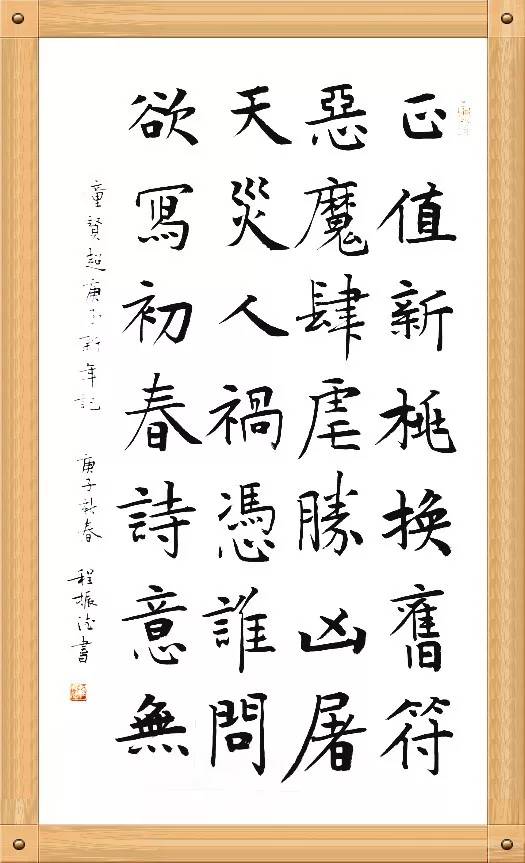 正值新桃換舊符
惡魔肆虐勝凶屠
天災人禍憑誰問
欲寫初春詩意無
童賢超庚子新年記 庚子新春 程振德書